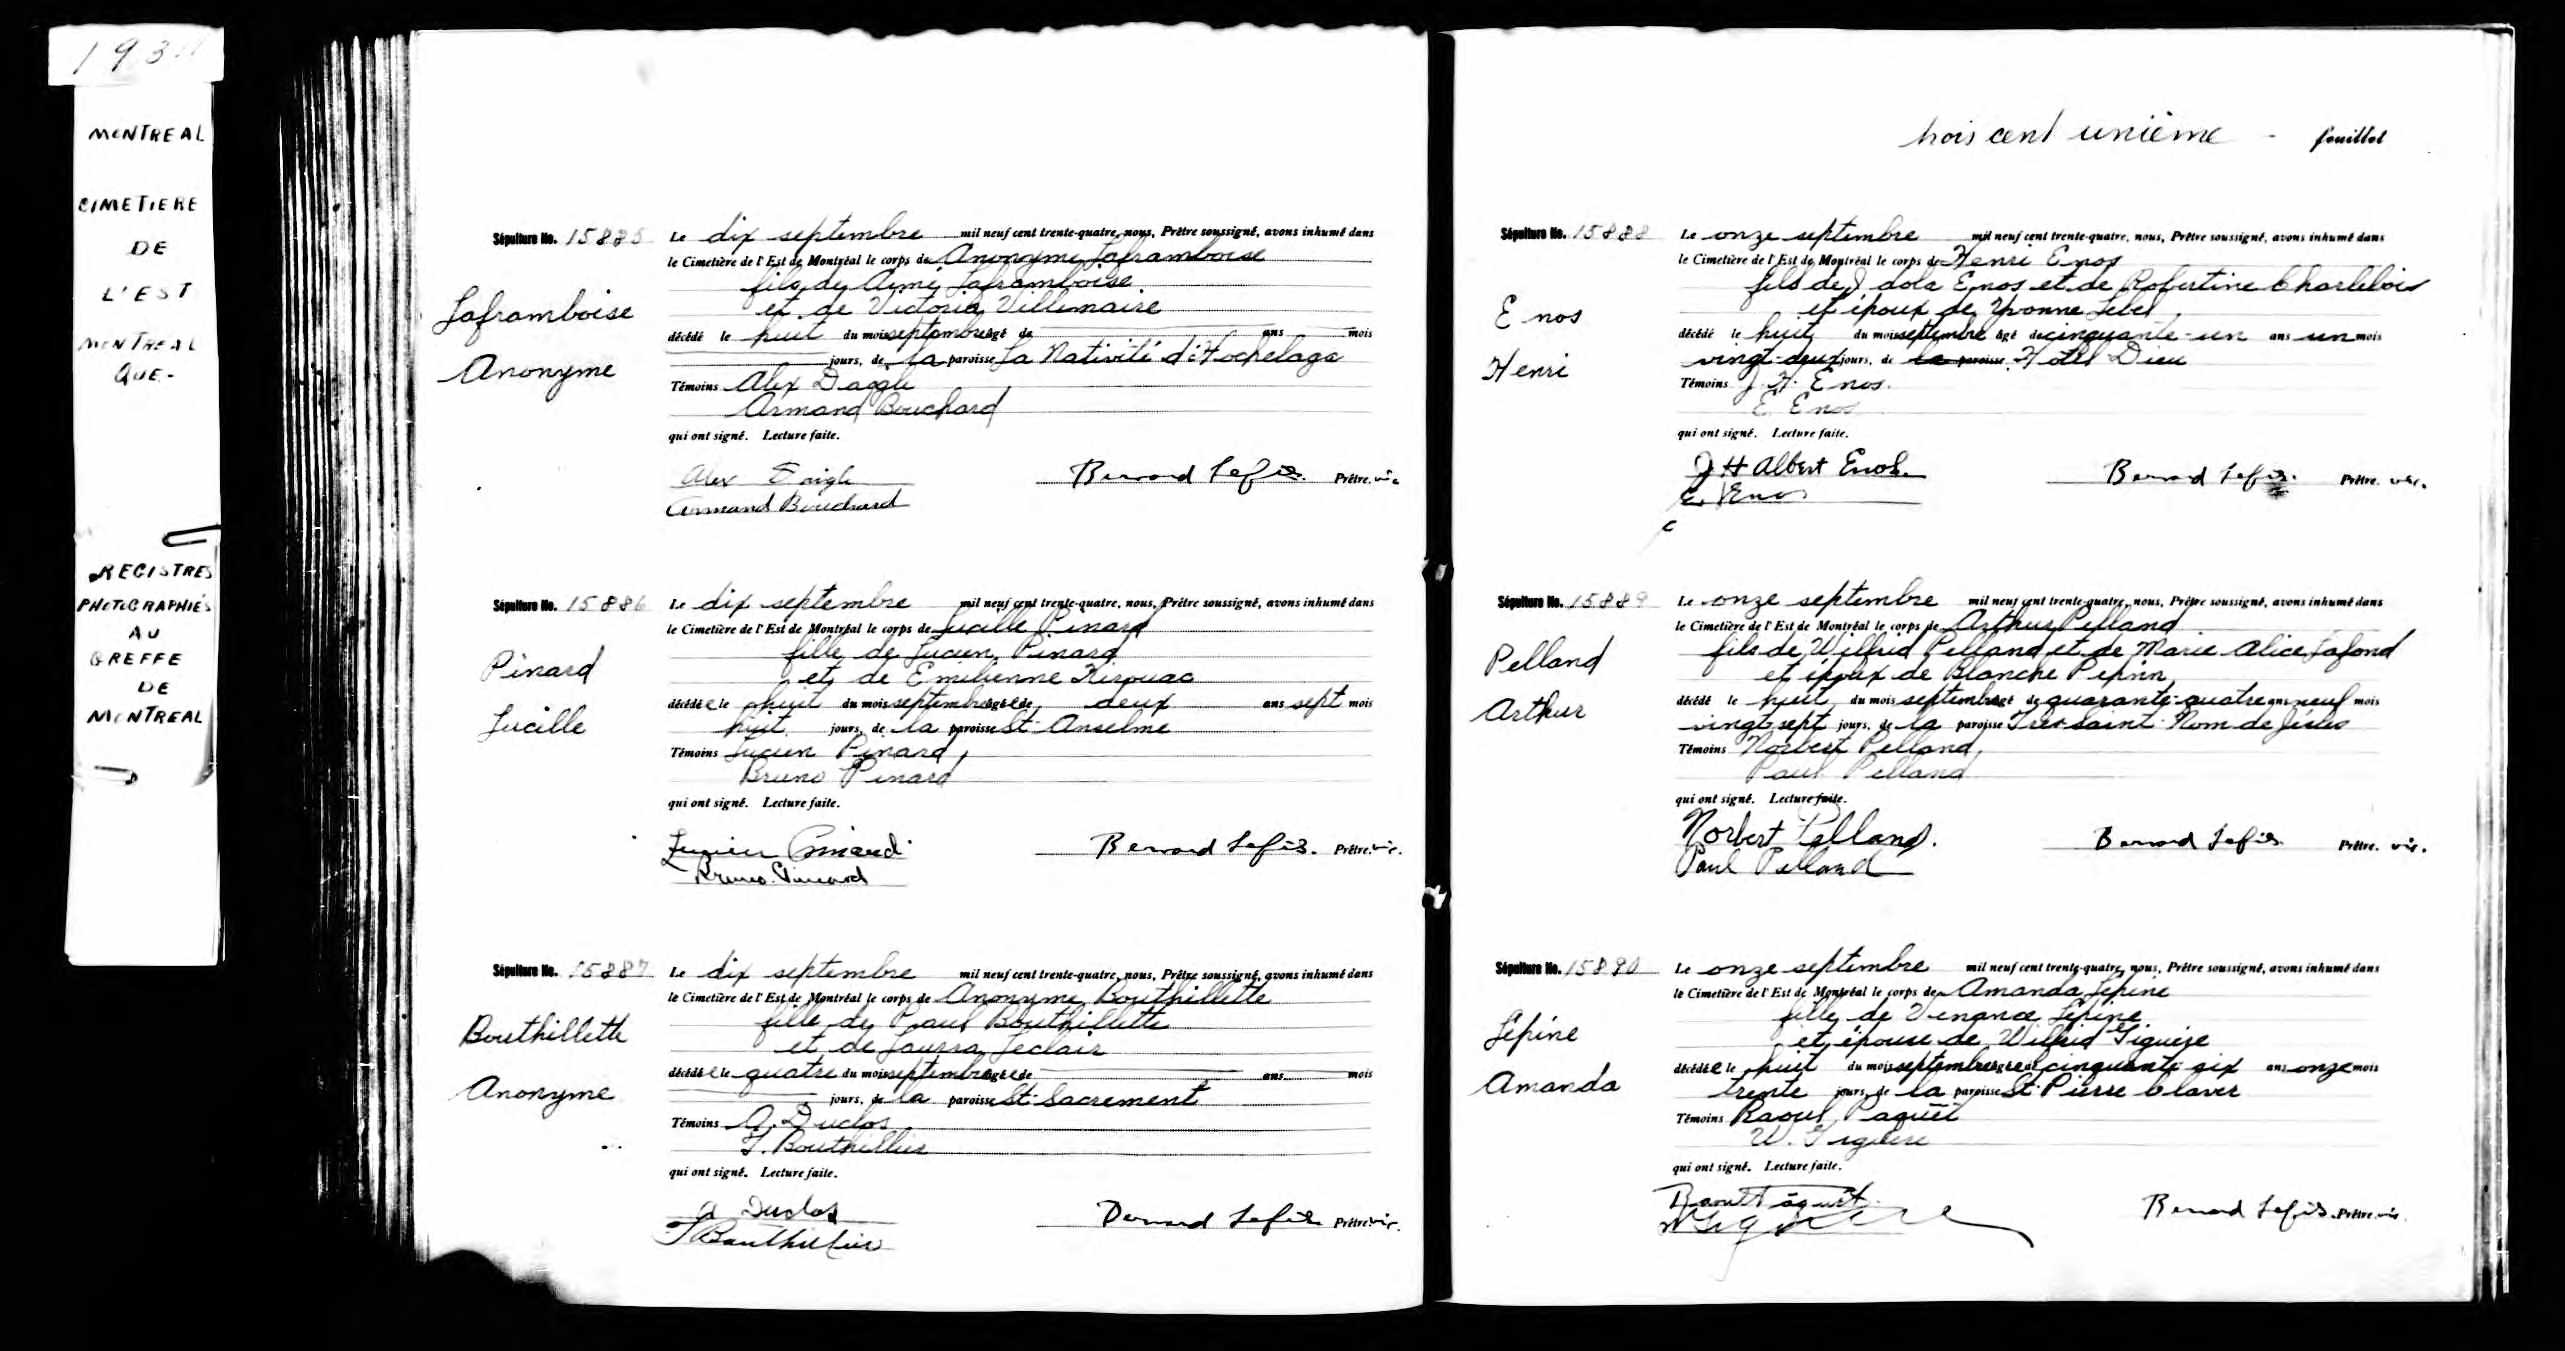 193
MONTREAL
CIMETIERE
DE
L'EST
MONTREAL
QUE-
REGISTRES
PHOTOGRAPHIÉS
AU
GREFFE
DE
MONTREAL
Sépulture No. 15885 Le dix septembre mil neuf cent trente-quatre, nous, Prêtre soussigné, avons inhumé dans
le Cimetière de l'Est de Montréal le corps de Anonyme Laframboise
fils de Aimé Laframboise
et de Victoria Villemaire
Laframboise
décédé le huit du mois septembre âgé de ans mois
jours, de la paroisse La Nativité d'Hochelaga
Anonyme
Témoins Alex Daigle
Armand Bouchard
qui ont signé. Lecture faite.
Alex Daigle Bernard Lefils. Prêtre. vic.
Armand Bouchard
Sépulture No. 15886 Le dix septembre mil neuf cent trente-quatre, nous, Prêtre soussigné, avons inhumé dans
le Cimetière de l'Est de Montréal le corps de Lucille Pinard
fille de Lucien Pinard
Pinard
et de Emilienne Kirouac
décédée le huit du mois septembre âgée de deux ans sept mois
Lucille
huit jours, de la paroisse St-Anselme
Témoins Lucien Pinard,
Bruno Pinard
qui ont signé. Lecture faite.
Lucien Pinard Bernard Lefils. Prêtre. vic.
Bruno Pinard
Sépulture No. 15887 Le dix septembre mil neuf cent trente-quatre, nous, Prêtre soussigné, avons inhumé dans
le Cimetière de l'Est de Montréal le corps de Anonyme Bouthillette
fille de Paul Bouthillette
Bouthillette
et de Laurra Leclair
décédée le quatre du mois septembre âgée de ans mois
Anonyme
jours, de la paroisse St-Sacrement
Témoins A. Duclos
T. Bouthillier
qui ont signé. Lecture faite.
A Duclos Bernard Lefils Prêtre vic.
T Bouthillier
trois cent unième - feuillet
Sépulture No. 15888 Le onze septembre mil neuf cent trente-quatre, nous, Prêtre soussigné, avons inhumé dans
le Cimetière de l'Est de Montréal le corps de Henri Enos
fils de J dola Enos et de Robertine Charlebois
et époux de Yvonne Lebel
Enos
décédé le huit du mois septembre âgé de cinquante-un ans un mois
vingt-deux jours, de la paroisse Hotel Dieu
Henri
Témoins J. H. Enos.
E. Enos
qui ont signé. Lecture faite.
J H Albert Enos. Bernard Lefils. Prêtre. vic.
E. Enos
Sépulture No. 15889 Le onze septembre mil neuf cent trente-quatre, nous, Prêtre soussigné, avons inhumé dans
le Cimetière de l'Est de Montréal le corps de Arthur Pelland
fils de Wilfrid Pelland et de Marie Alice Lafond
Pelland
et époux de Blanche Pepin
décédé le huit du mois septembre âgé de quarante-quatre ans neuf mois
Arthur
vingt sept jours, de la paroisse Tres-saint-Nom de Jésus
Témoins Norbert Pelland,
Paul Pelland
qui ont signé. Lecture faite.
Norbert Pelland. Bernard Lefils Prêtre. vic.
Paul Pelland
Sépulture No. 15890 Le onze septembre mil neuf cent trente-quatre, nous, Prêtre soussigné, avons inhumé dans
le Cimetière de l'Est de Montréal le corps de Amanda Lépine
fille de Venance Lépine
Lépine
et épouse de Wilfrid Giguère
décédée le huit du mois septembre âgée de cinquante-six ans onze mois
Amanda
trente jours, de la paroisse St Pierre Claver
Témoins Raoul Paquet
W. Giguère
qui ont signé. Lecture faite.
Raoul Paquet. Bernard Lefils. Prêtre. vic.
W Giguère